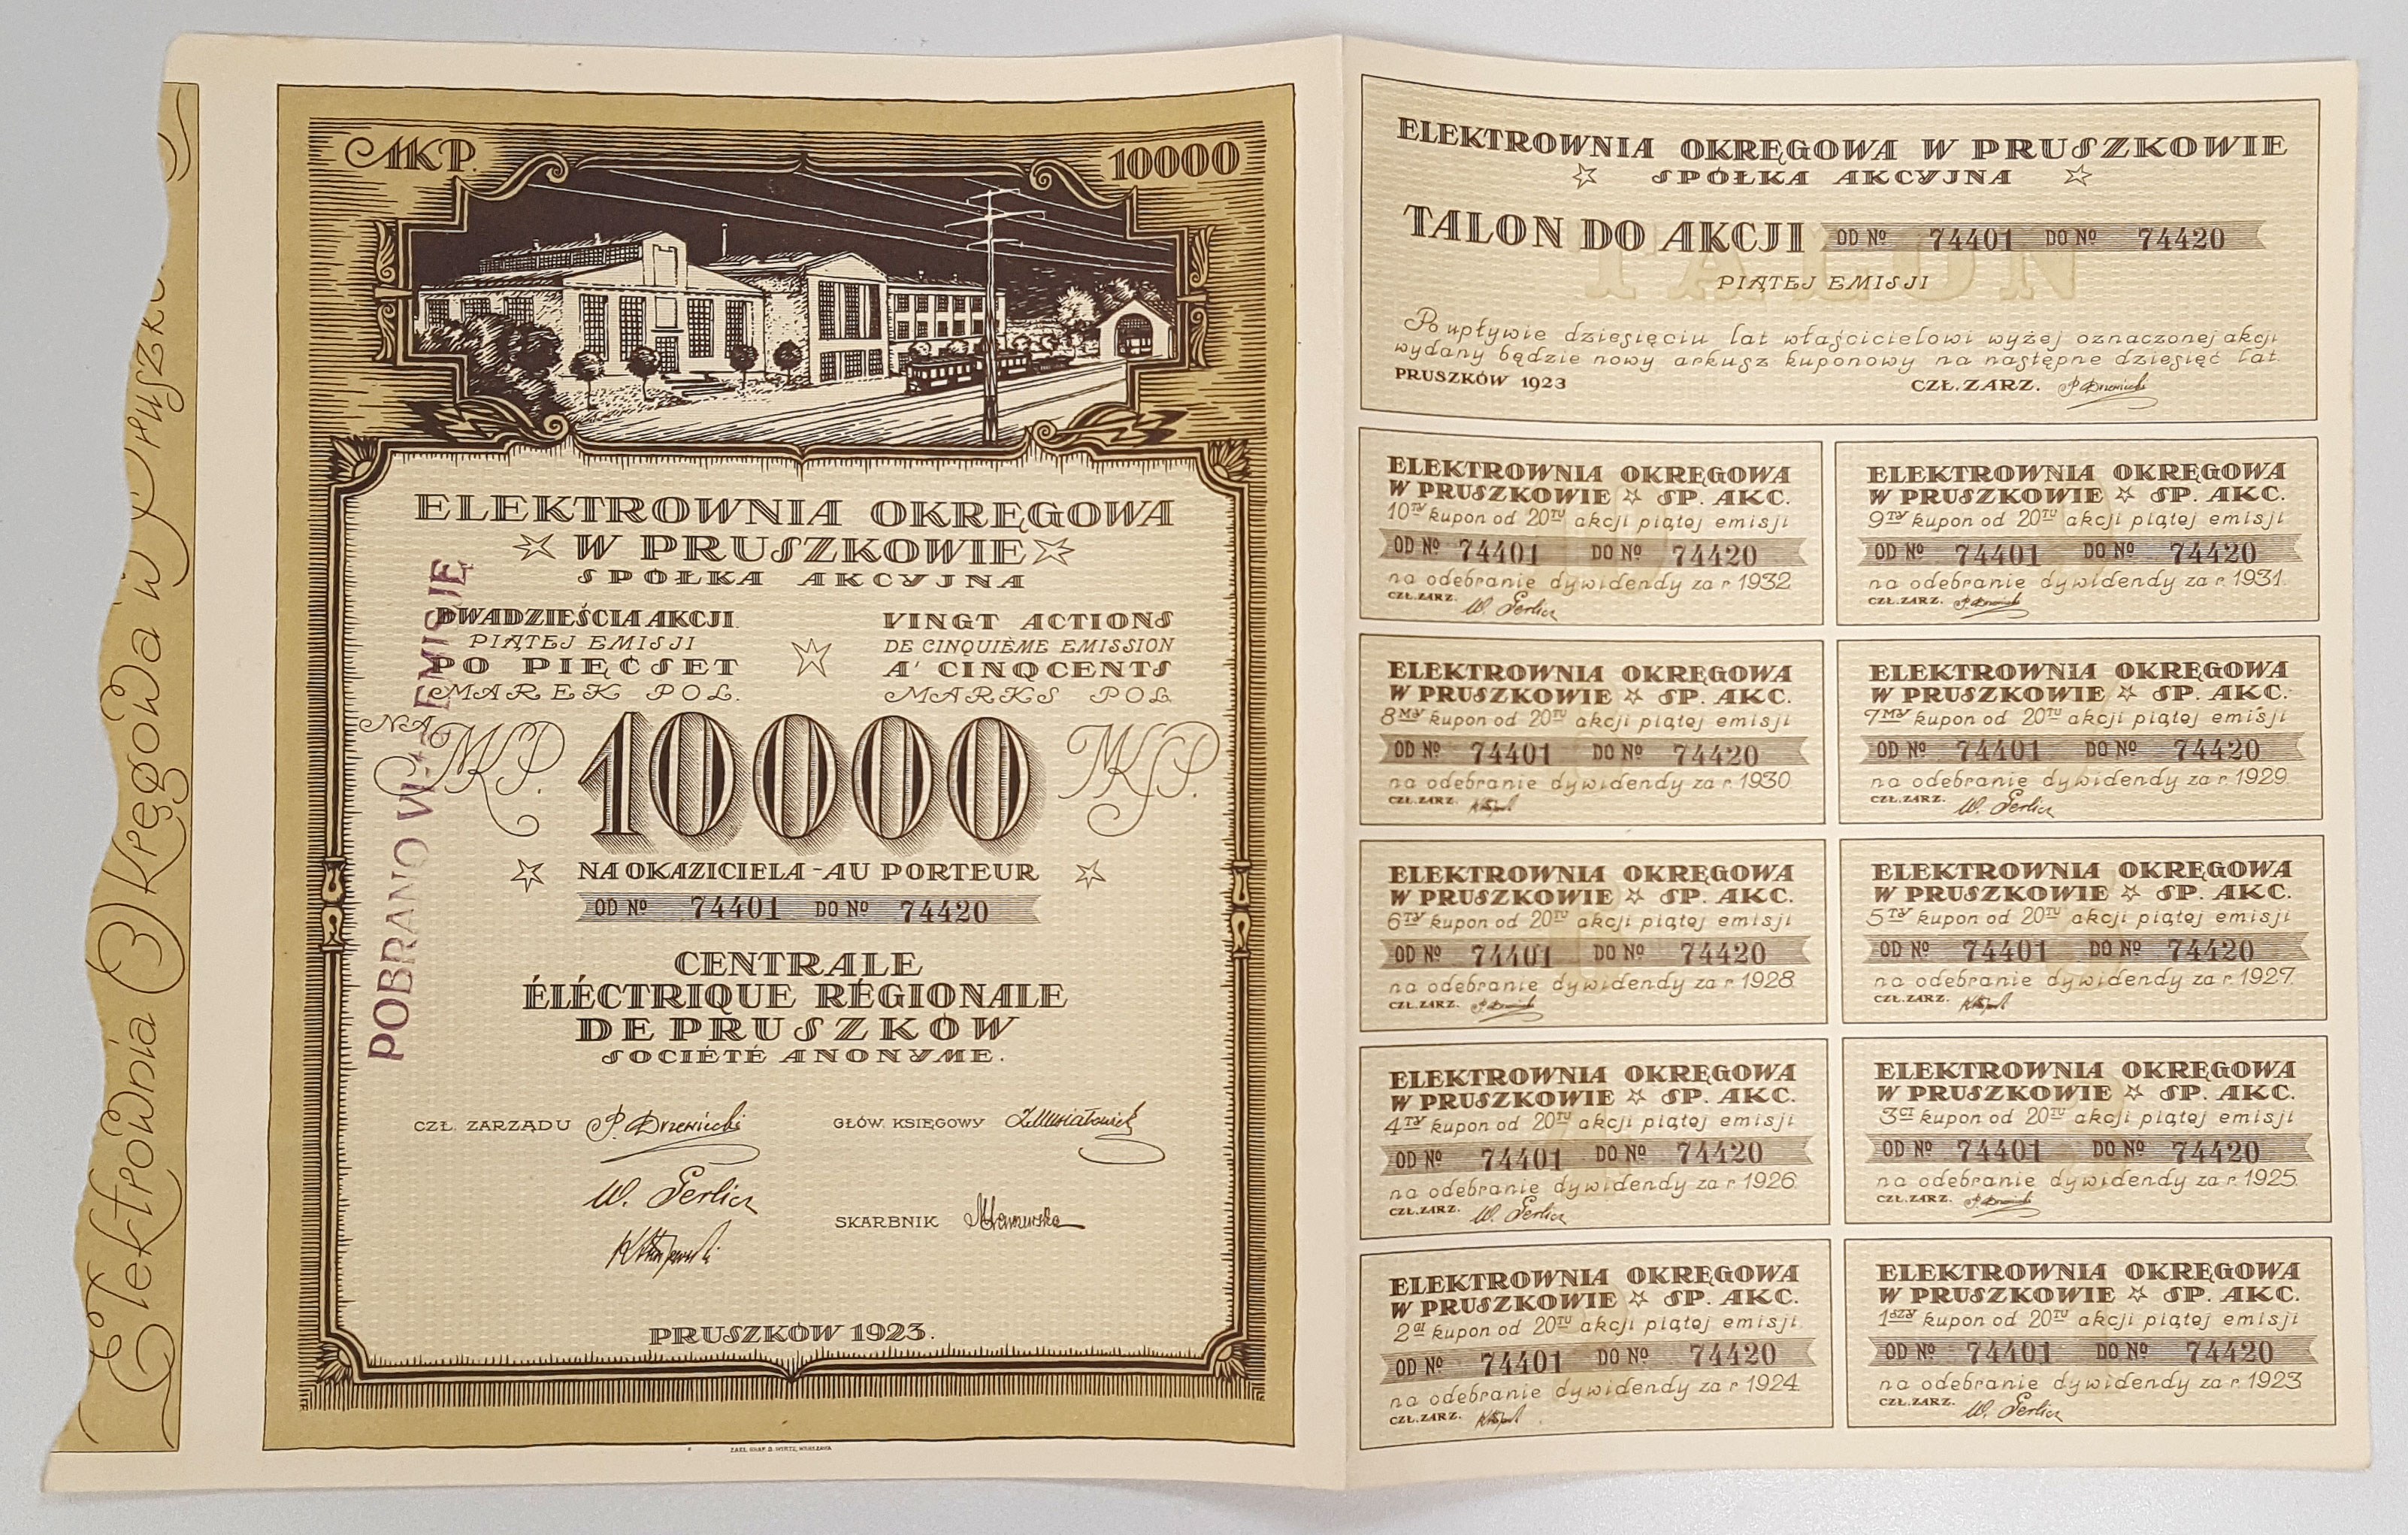 Elektrownia Okręgowa w Pruszko
MKP. 10000
ELEKTROWNIA OKRĘGOWA
W PRUSZKOWIE
SPÓŁKA AKCYJNA
DWADZIEŚCIA AKCJI
PIĄTEJ EMISJI
PO PIĘĆSET
MAREK POL.
VINGT ACTIONS
DE CINQUIÈME EMISSION
A' CINQCENTS
MARKS POL
NA MKP. 10000 MKP.
NA OKAZICIELA - AU PORTEUR
OD № 74401 DO № 74420
CENTRALE
ÉLÉCTRIQUE RÉGIONALE
DE PRUSZKÓW
SOCIÉTÉ ANONYME.
CZŁ. ZARZĄDU P. Drzewiecki
GŁÓW. KSIĘGOWY
W. Gerlicz
SKARBNIK
PRUSZKÓW 1923.
ZAKŁ. GRAF. B. WIRTZ, WARSZAWA
POBRANO VI EMISJĘ
ELEKTROWNIA OKRĘGOWA W PRUSZKOWIE
SPÓŁKA AKCYJNA
TALON DO AKCJI OD № 74401 DO № 74420
TALON
PIĄTEJ EMISJI
Po upływie dziesięciu lat właścicielowi wyżej oznaczonej akcji
wydany będzie nowy arkusz kuponowy na następne dziesięć lat.
PRUSZKÓW 1923 CZŁ. ZARZ. P. Drzewiecki
ELEKTROWNIA OKRĘGOWA
W PRUSZKOWIE SP. AKC.
10TY kupon od 20TU akcji piątej emisji
OD № 74401 DO № 74420
na odebranie dywidendy za r. 1932.
CZŁ. ZARZ. W. Gerlicz
ELEKTROWNIA OKRĘGOWA
W PRUSZKOWIE SP. AKC.
9TY kupon od 20TU akcji piątej emisji
OD № 74401 DO № 74420
na odebranie dywidendy za r. 1931.
CZŁ. ZARZ. P. Drzewiecki
ELEKTROWNIA OKRĘGOWA
W PRUSZKOWIE SP. AKC.
8MY kupon od 20TU akcji piątej emisji
OD № 74401 DO № 74420
na odebranie dywidendy za r. 1930.
CZŁ. ZARZ.
ELEKTROWNIA OKRĘGOWA
W PRUSZKOWIE SP. AKC.
7MY kupon od 20TU akcji piątej emisji
OD № 74401 DO № 74420
na odebranie dywidendy za r. 1929.
CZŁ. ZARZ. W. Gerlicz
ELEKTROWNIA OKRĘGOWA
W PRUSZKOWIE SP. AKC.
6TY kupon od 20TU akcji piątej emisji
OD № 74401 DO № 74420
na odebranie dywidendy za r. 1928.
CZŁ. ZARZ. P. Drzewiecki
ELEKTROWNIA OKRĘGOWA
W PRUSZKOWIE SP. AKC.
5TY kupon od 20TU akcji piątej emisji
OD № 74401 DO № 74420
na odebranie dywidendy za r. 1927.
CZŁ. ZARZ.
ELEKTROWNIA OKRĘGOWA
W PRUSZKOWIE SP. AKC.
4TY kupon od 20TU akcji piątej emisji
OD № 74401 DO № 74420
na odebranie dywidendy za r. 1926.
CZŁ. ZARZ. W. Gerlicz
ELEKTROWNIA OKRĘGOWA
W PRUSZKOWIE SP. AKC.
3CI kupon od 20TU akcji piątej emisji
OD № 74401 DO № 74420
na odebranie dywidendy za r. 1925.
CZŁ. ZARZ. P. Drzewiecki
ELEKTROWNIA OKRĘGOWA
W PRUSZKOWIE SP. AKC.
2GI kupon od 20TU akcji piątej emisji
OD № 74401 DO № 74420
na odebranie dywidendy za r. 1924.
CZŁ. ZARZ.
ELEKTROWNIA OKRĘGOWA
W PRUSZKOWIE SP. AKC.
1SZY kupon od 20TU akcji piątej emisji
OD № 74401 DO № 74420
na odebranie dywidendy za r. 1923
CZŁ. ZARZ. W. Gerlicz